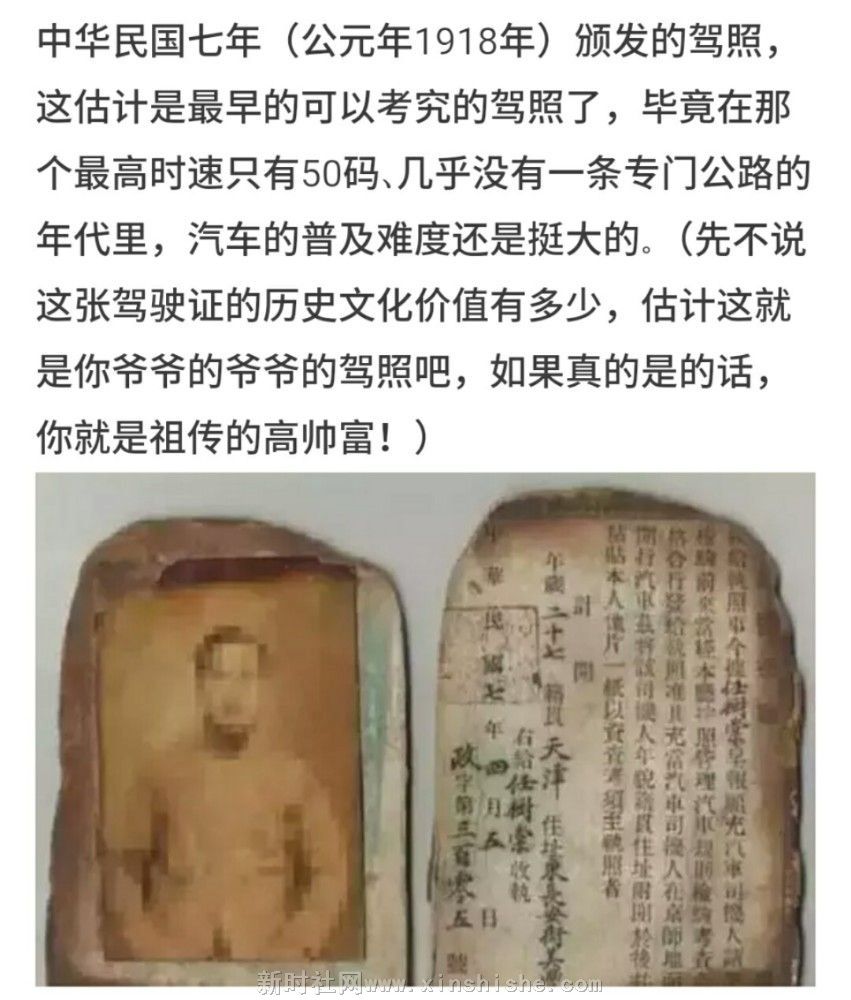 中华民国七年（公元年1918年）颁发的驾照，
这估计是最早的可以考究的驾照了，毕竟在那
个最高时速只有50码、几乎没有一条专门公路的
年代里，汽车的普及难度还是挺大的。（先不说
这张驾驶证的历史文化价值有多少，估计这就
是你爷爷的爷爷的驾照吧，如果真的是的话，
你就是祖传的高帅富！）
給執照事今據任樹棠呈報願充汽車司機人請
檢驗前來當經本廳按照管理汽車規則檢驗考查
格合行發給執照准其充當汽車司機人在京師地面
開行汽車茲將該司機人年貌籍貫住址附開於後並
粘貼本人像片一紙以資查考須至執照者
計開
年歲二十七 籍貫天津 住址東長安街美
右給任樹棠收執
中華民國七年四月五日
政字第三百零五號
新时社网www.xinshishe.com